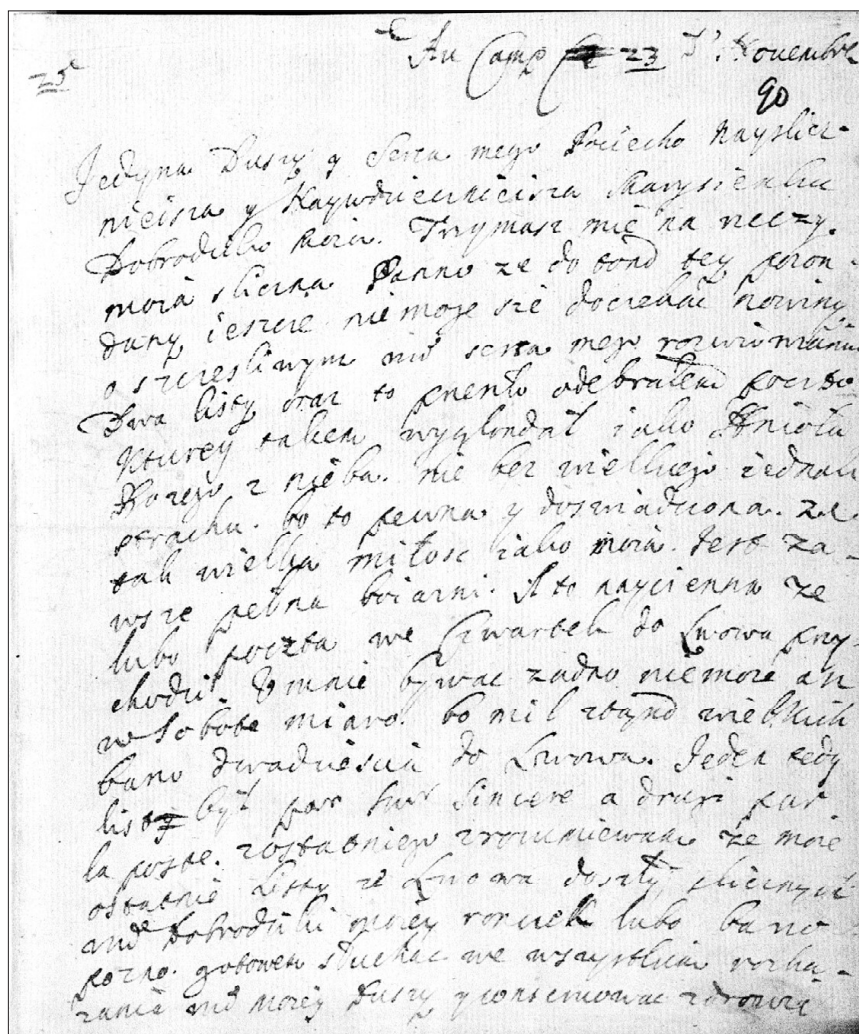 25
Au Camp 23 9. Novembre
90
Jedyna Duszy y Serca mego Pociecho Nayslicz-
nieisza y Naywdziecznieisza Marysienku
Dobrodziko moia. Trzymasz mię na reczy.
moia sliczna Panno ze do tond tey pozon-
dany ieszcze niemoge sie doczekać nowiny
o szczesliwym serca mego rozwionzaniu
Dwa listy oraz to odebrałem poczto
Kturey takem wyglondał iako Anioła
Bozego z nieba. nie bez wielkiego iednak
strachu. bo to pewna y doswiadczona. ze
tak wielka miłosc iako moia. Jest za-
wsze pełna boiazni. A to nayciensza ze
lubo poczta we Czwartek do Lwowa przy-
chodzi. U mnie bywac zadno miaro niemoze az
w Sobote. bo mil ztond wielkich
bano dwadziescia do Lwowa. Jeden tedy
list był par Sincere a drugi par
la poste. zostatniego zrozumiewam ze moie
ostatnie listy ze Lwowa doszły slicznych
Dobrodziki moiey ronczek lubo bano
pozno. gotowem słuchac we wszystkim rozka-
zania moiey Duszy y konserwowac zdrowie